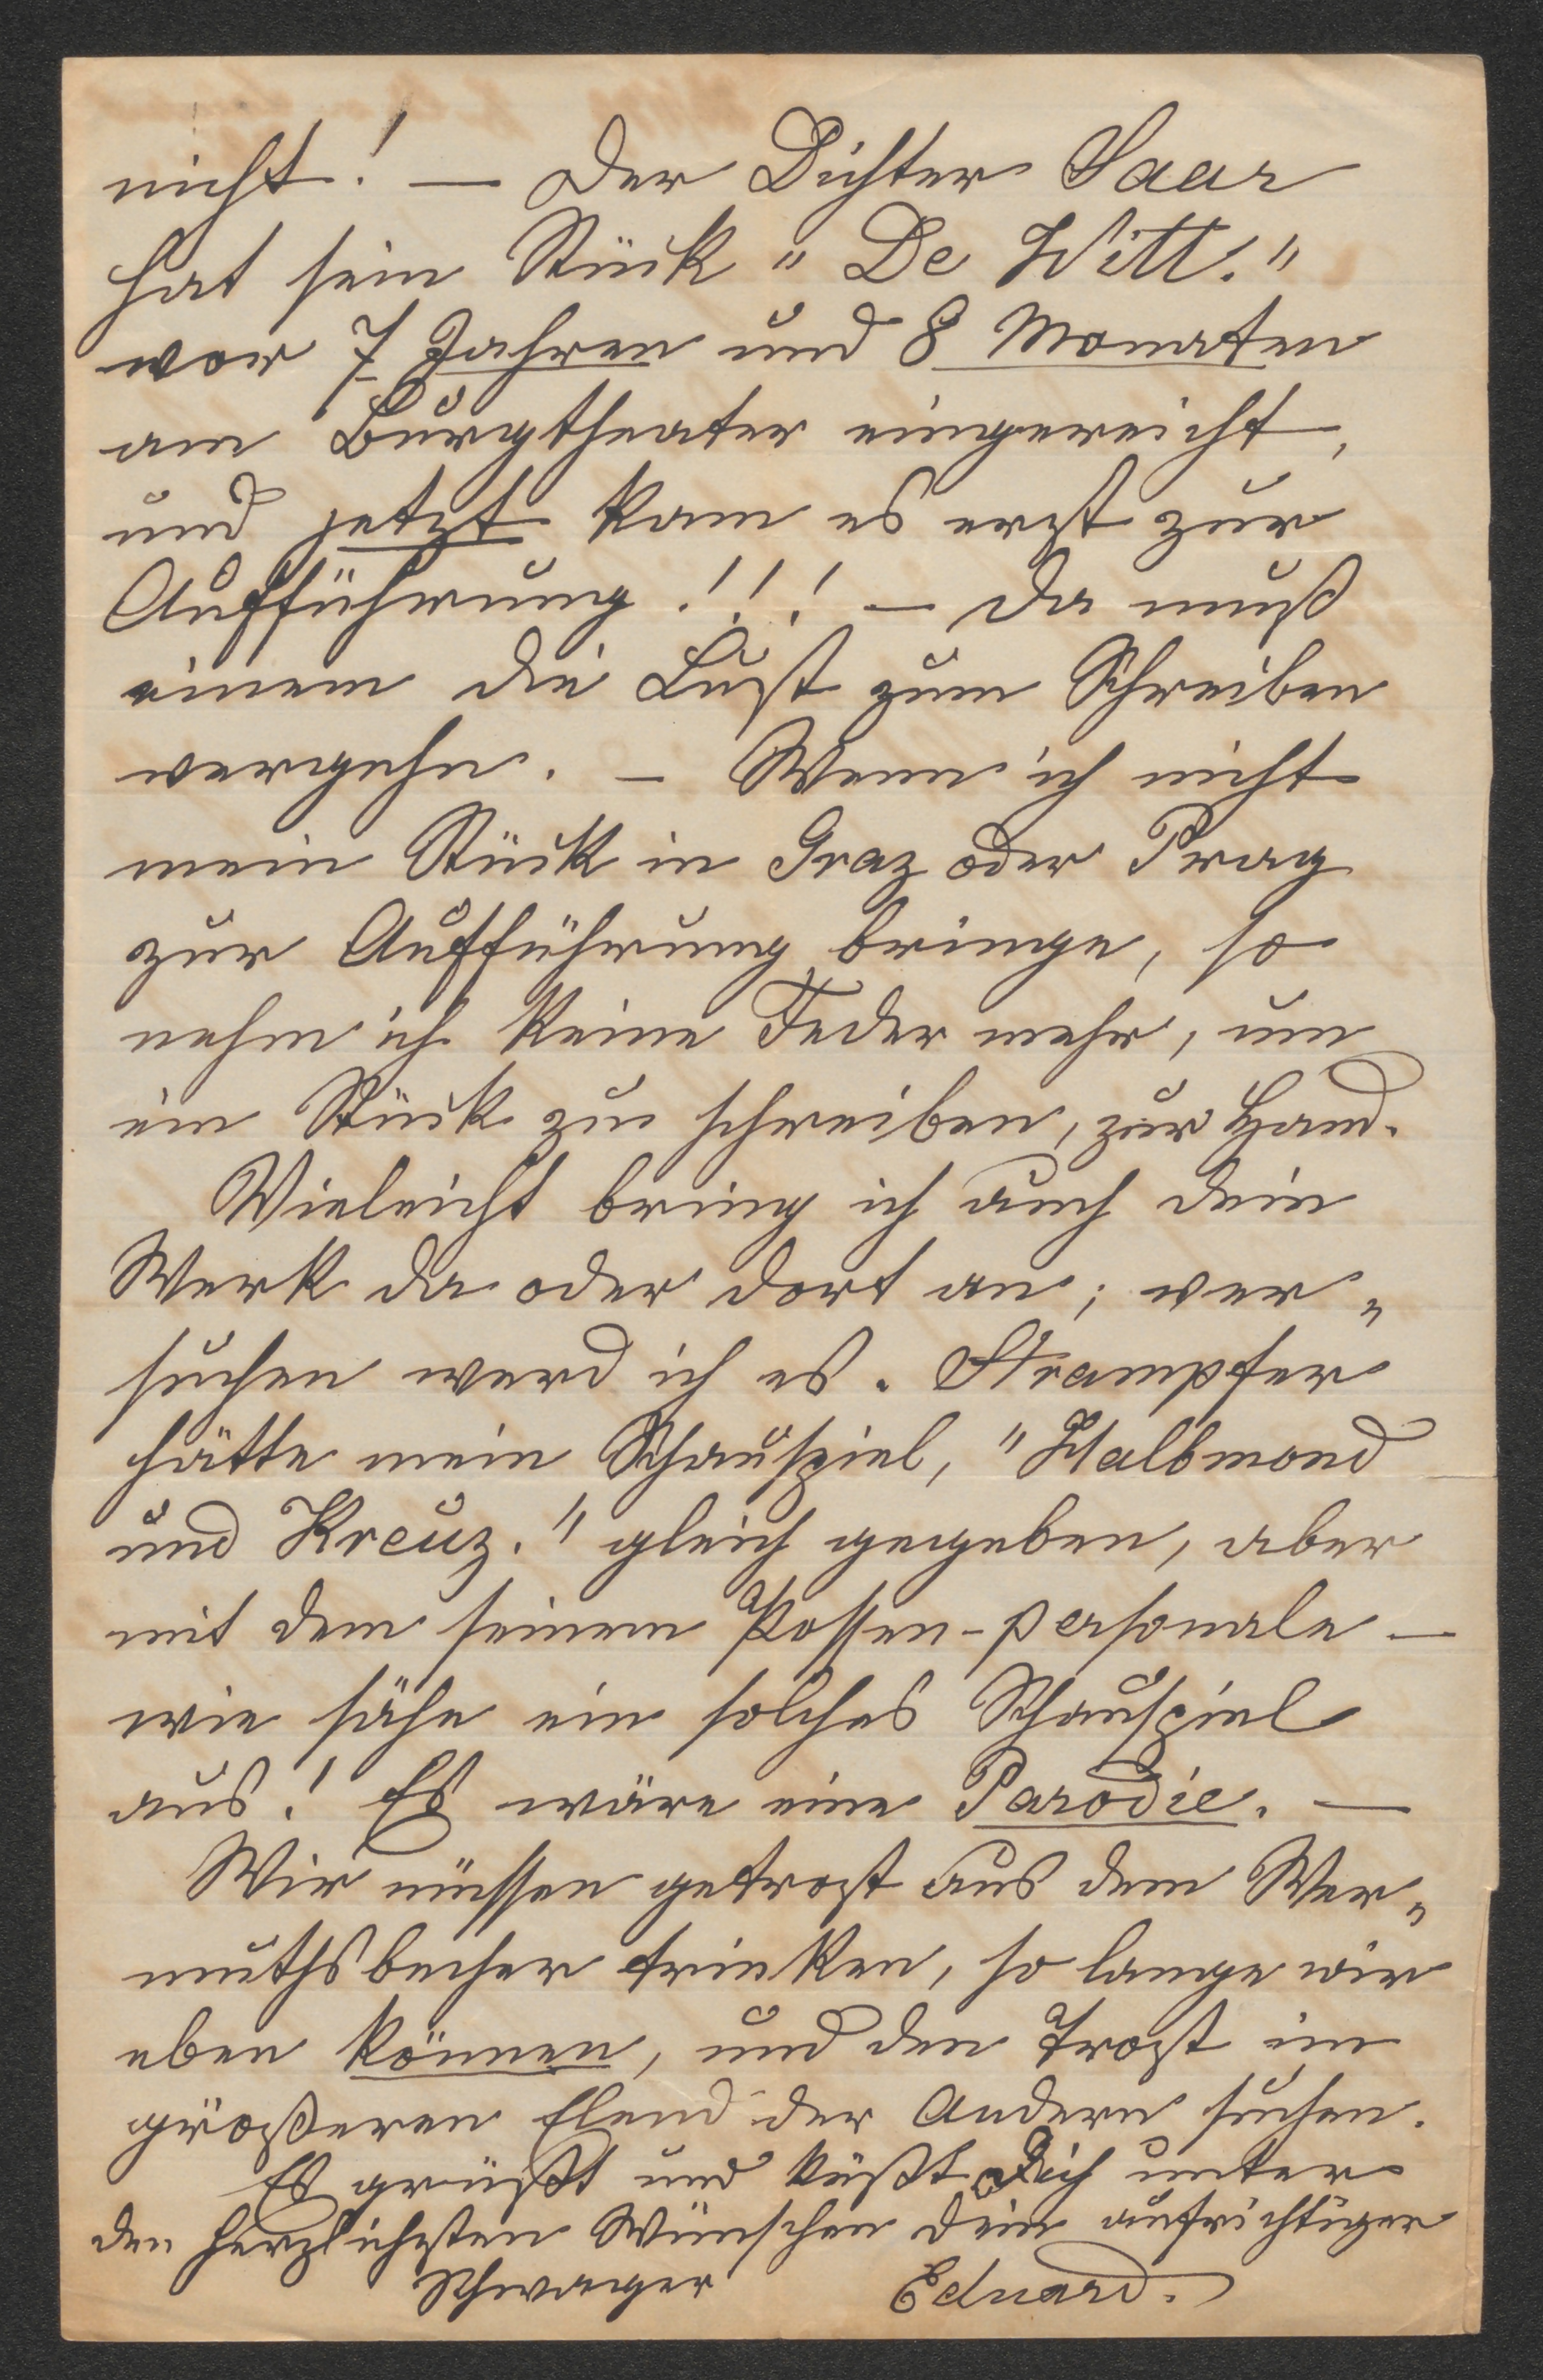 nicht! — Der Dichter Saar
hat sein Stück "De Witt."
vor 7 Jahren und 8 Monaten
am Burgtheater eingereicht,
und jetzt kam es erst zur
Aufführung!!! — Da muß
einem die Lust zum Schreiben
vergehn. — Wenn ich nicht
mein Stück in Graz oder Prag
zur Aufführung bringe, so
nehm ich keine Feder mehr, um
ein Stück zu schreiben, zur Hand.
Vieleicht bring ich auch dein
Werk da oder dort an; ver„
suchen werd ich es. Strampfer
hätte mein Schauspiel, "Halbmond
und Kreuz." gleich gegeben, aber
mit dem seinem Possen-personale —
wie sähe ein solches Schauspiel
aus! Es wäre eine Parodie. —
Wir müssen getrost aus dem Wer„
muthsbecher trinken, so lange wir
eben können, und den Trost im
größeren Elend der Andern suchen.
Es grüßt und küßt Dich unter
den herzlichsten Wünschen dein aufrichtiger
Schwager Eduard.